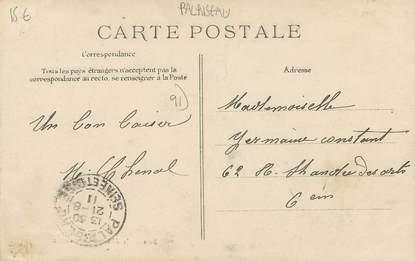 15 €
PALAISEAU
CARTE POSTALE
Correspondance
Tous les pays étrangers n'acceptent pas la
correspondance au recto, se renseigner à la Poste
Adresse
91
Un bon baiser
Chenal
Mademoiselle
Germaine Constant
62 St des arts
PALAISEAU
13 30
21-8
11
SEINE ET OISE